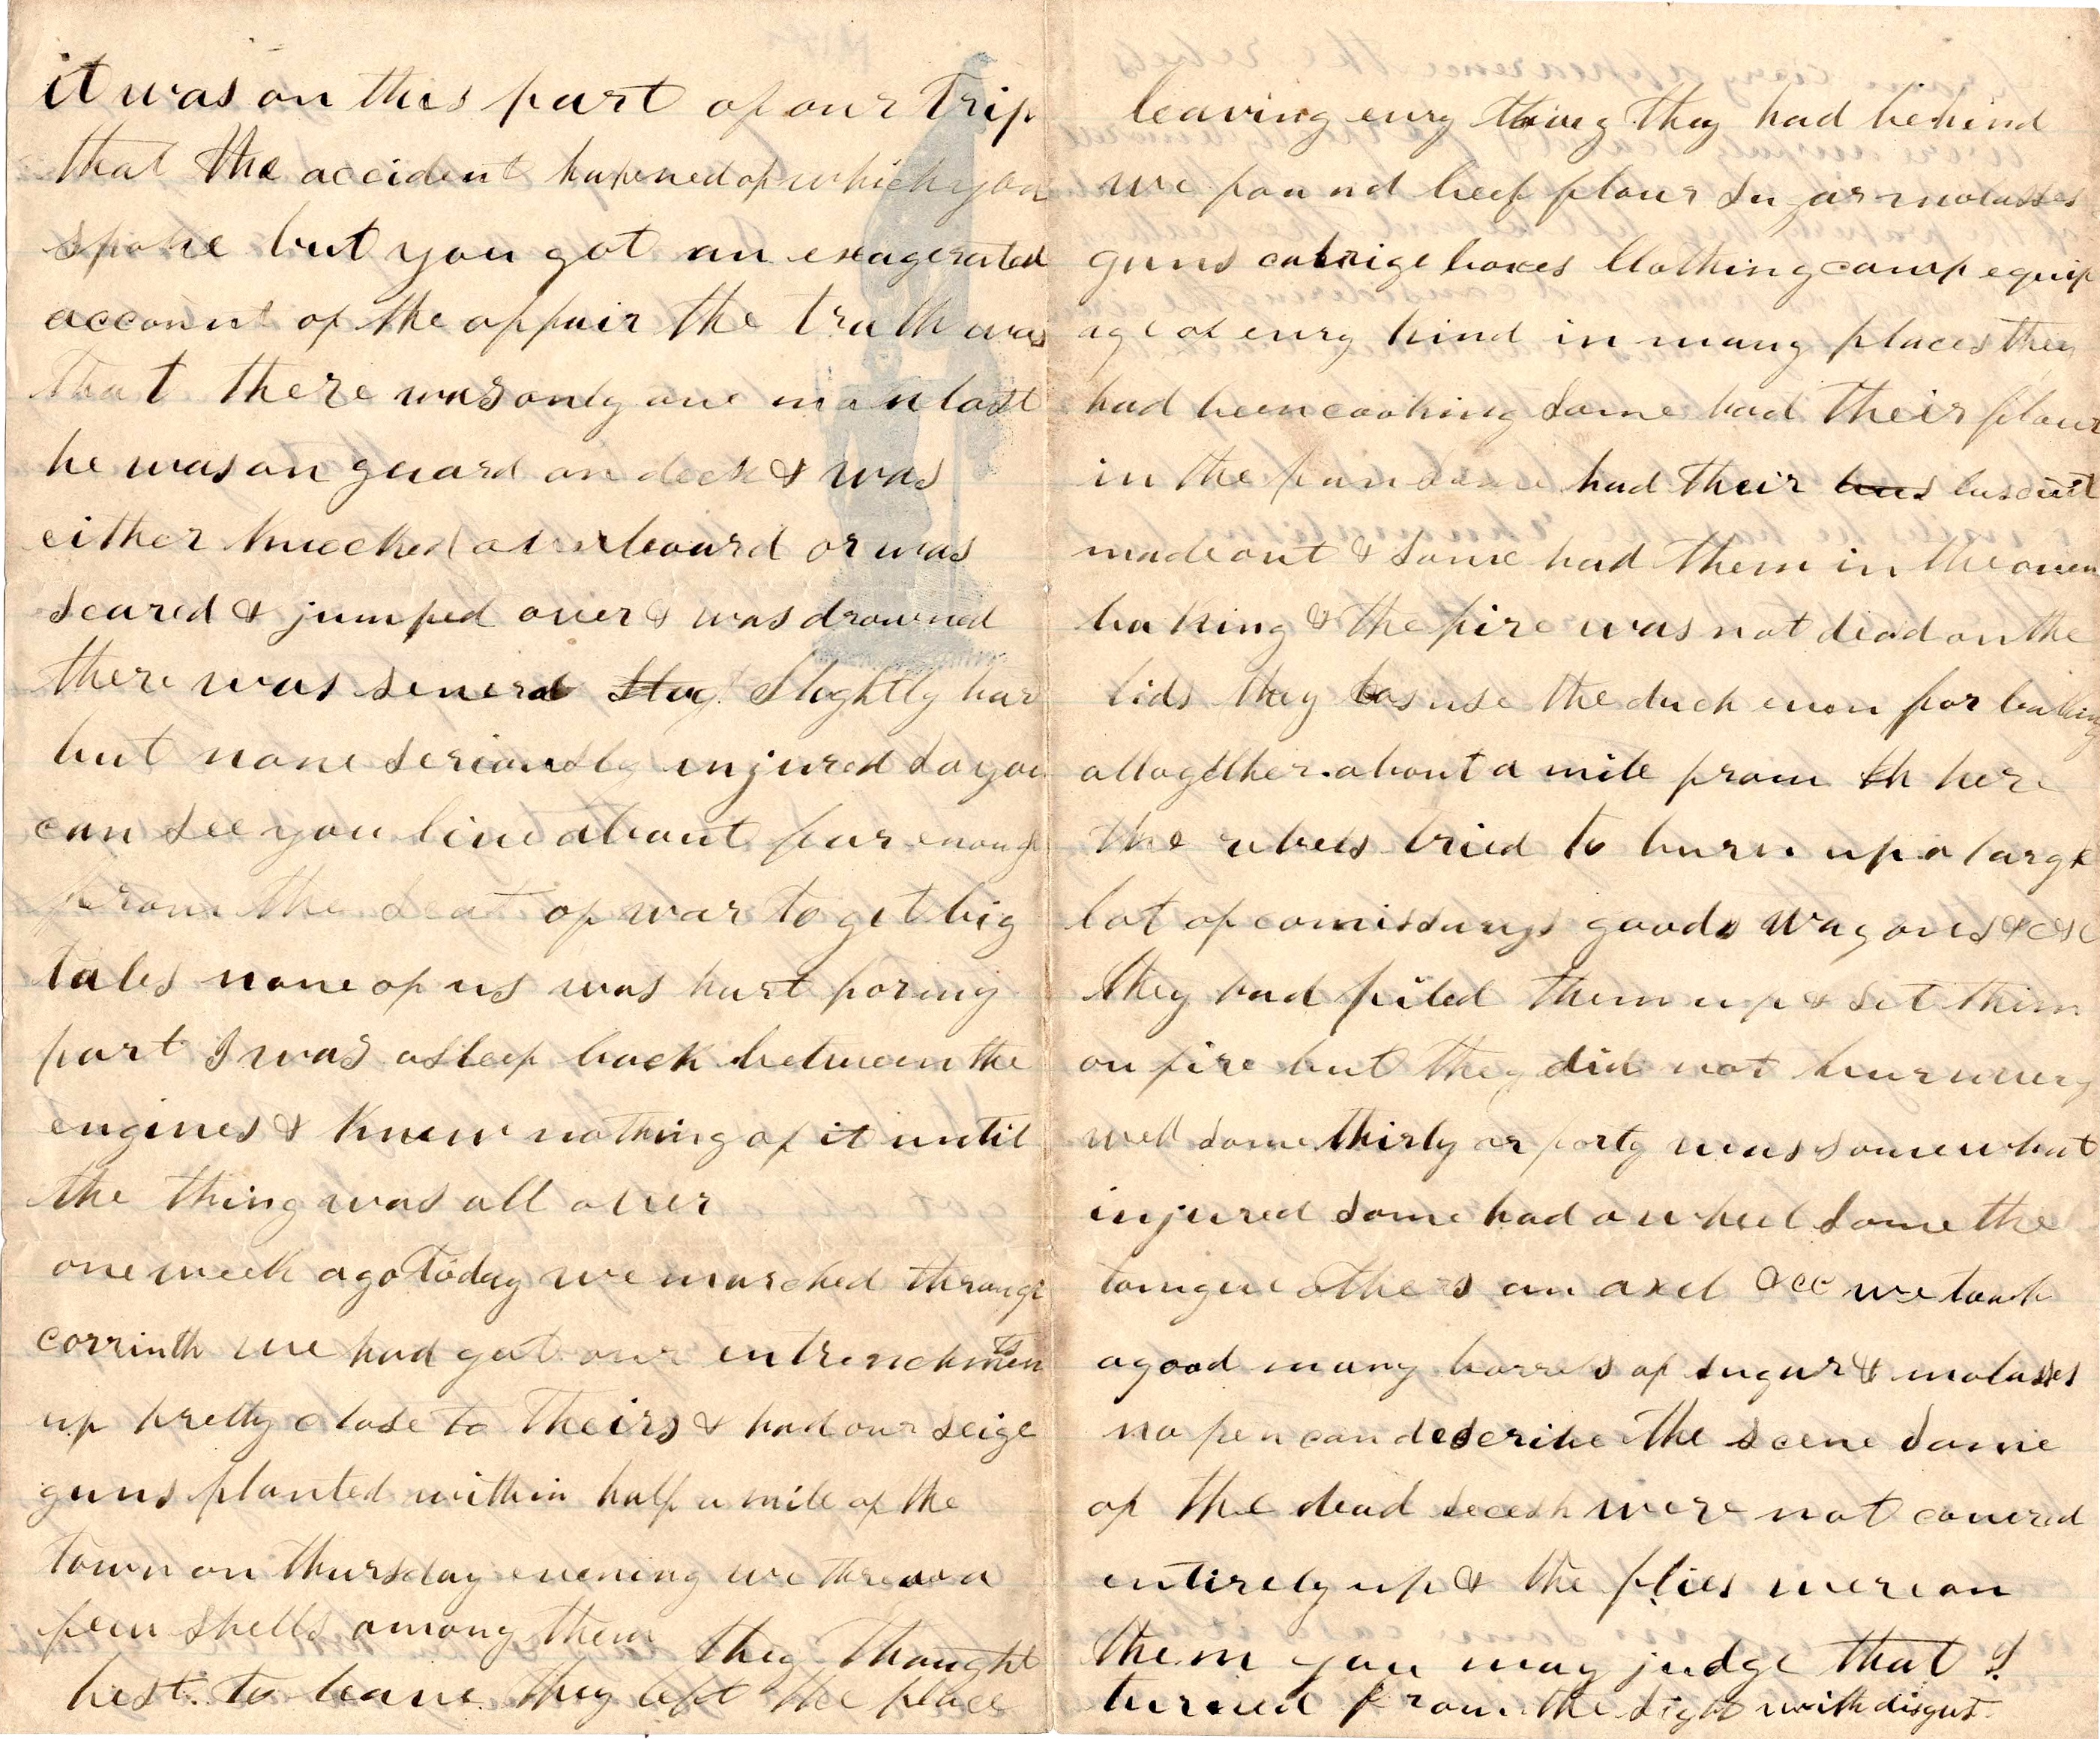 it was on this part of our trip
that the accident hapened of which you
spoke but you got an exagerated
account of the affair the truth was
that there was only one man lost
he was on guard on deck & was
either knocked overboard or was
scared & jumped over & was drowned
there was several slightly hur
but none seriously injured so you
can see you live about far enough
from the seat of war to get big
tales none of us was hurt for my
part I was asleep back between the
engines & knew nothing of it until
the thing was all over
one week ago today we marched through
corrinth we had got our entrenchments
up pretty close to theirs & had our seige
guns planted within half a mile of the
town on thursday evening we threw a
few shells among them they thought
best to leave they left the place
leaving evry thing they had behind
we found beef flour sugar molasses
guns catrige boxes clothing camp equip
age of evry kind in many places they
had been cooking some had their flour
in the pan some had their buscuit
made out & some had them in the oven
baking & the fire was not dead on the
lids they use the duch oven for baking
altogether. about a mile from here
the rebels tried to burn up a large
lot of comissarys goods wagons &c&c
they had piled them up & set them
on fire but they did not burn very
well some thirty or forty was somewhat
injured some had a wheel some the
tongue others an axel &cc we took
a good many barrels of sugar & molasses
no pen can describe the scene some
of the dead secesh were not covered
entirely up & the flies were on
them you may judge that I
turned from the sight with disgust.